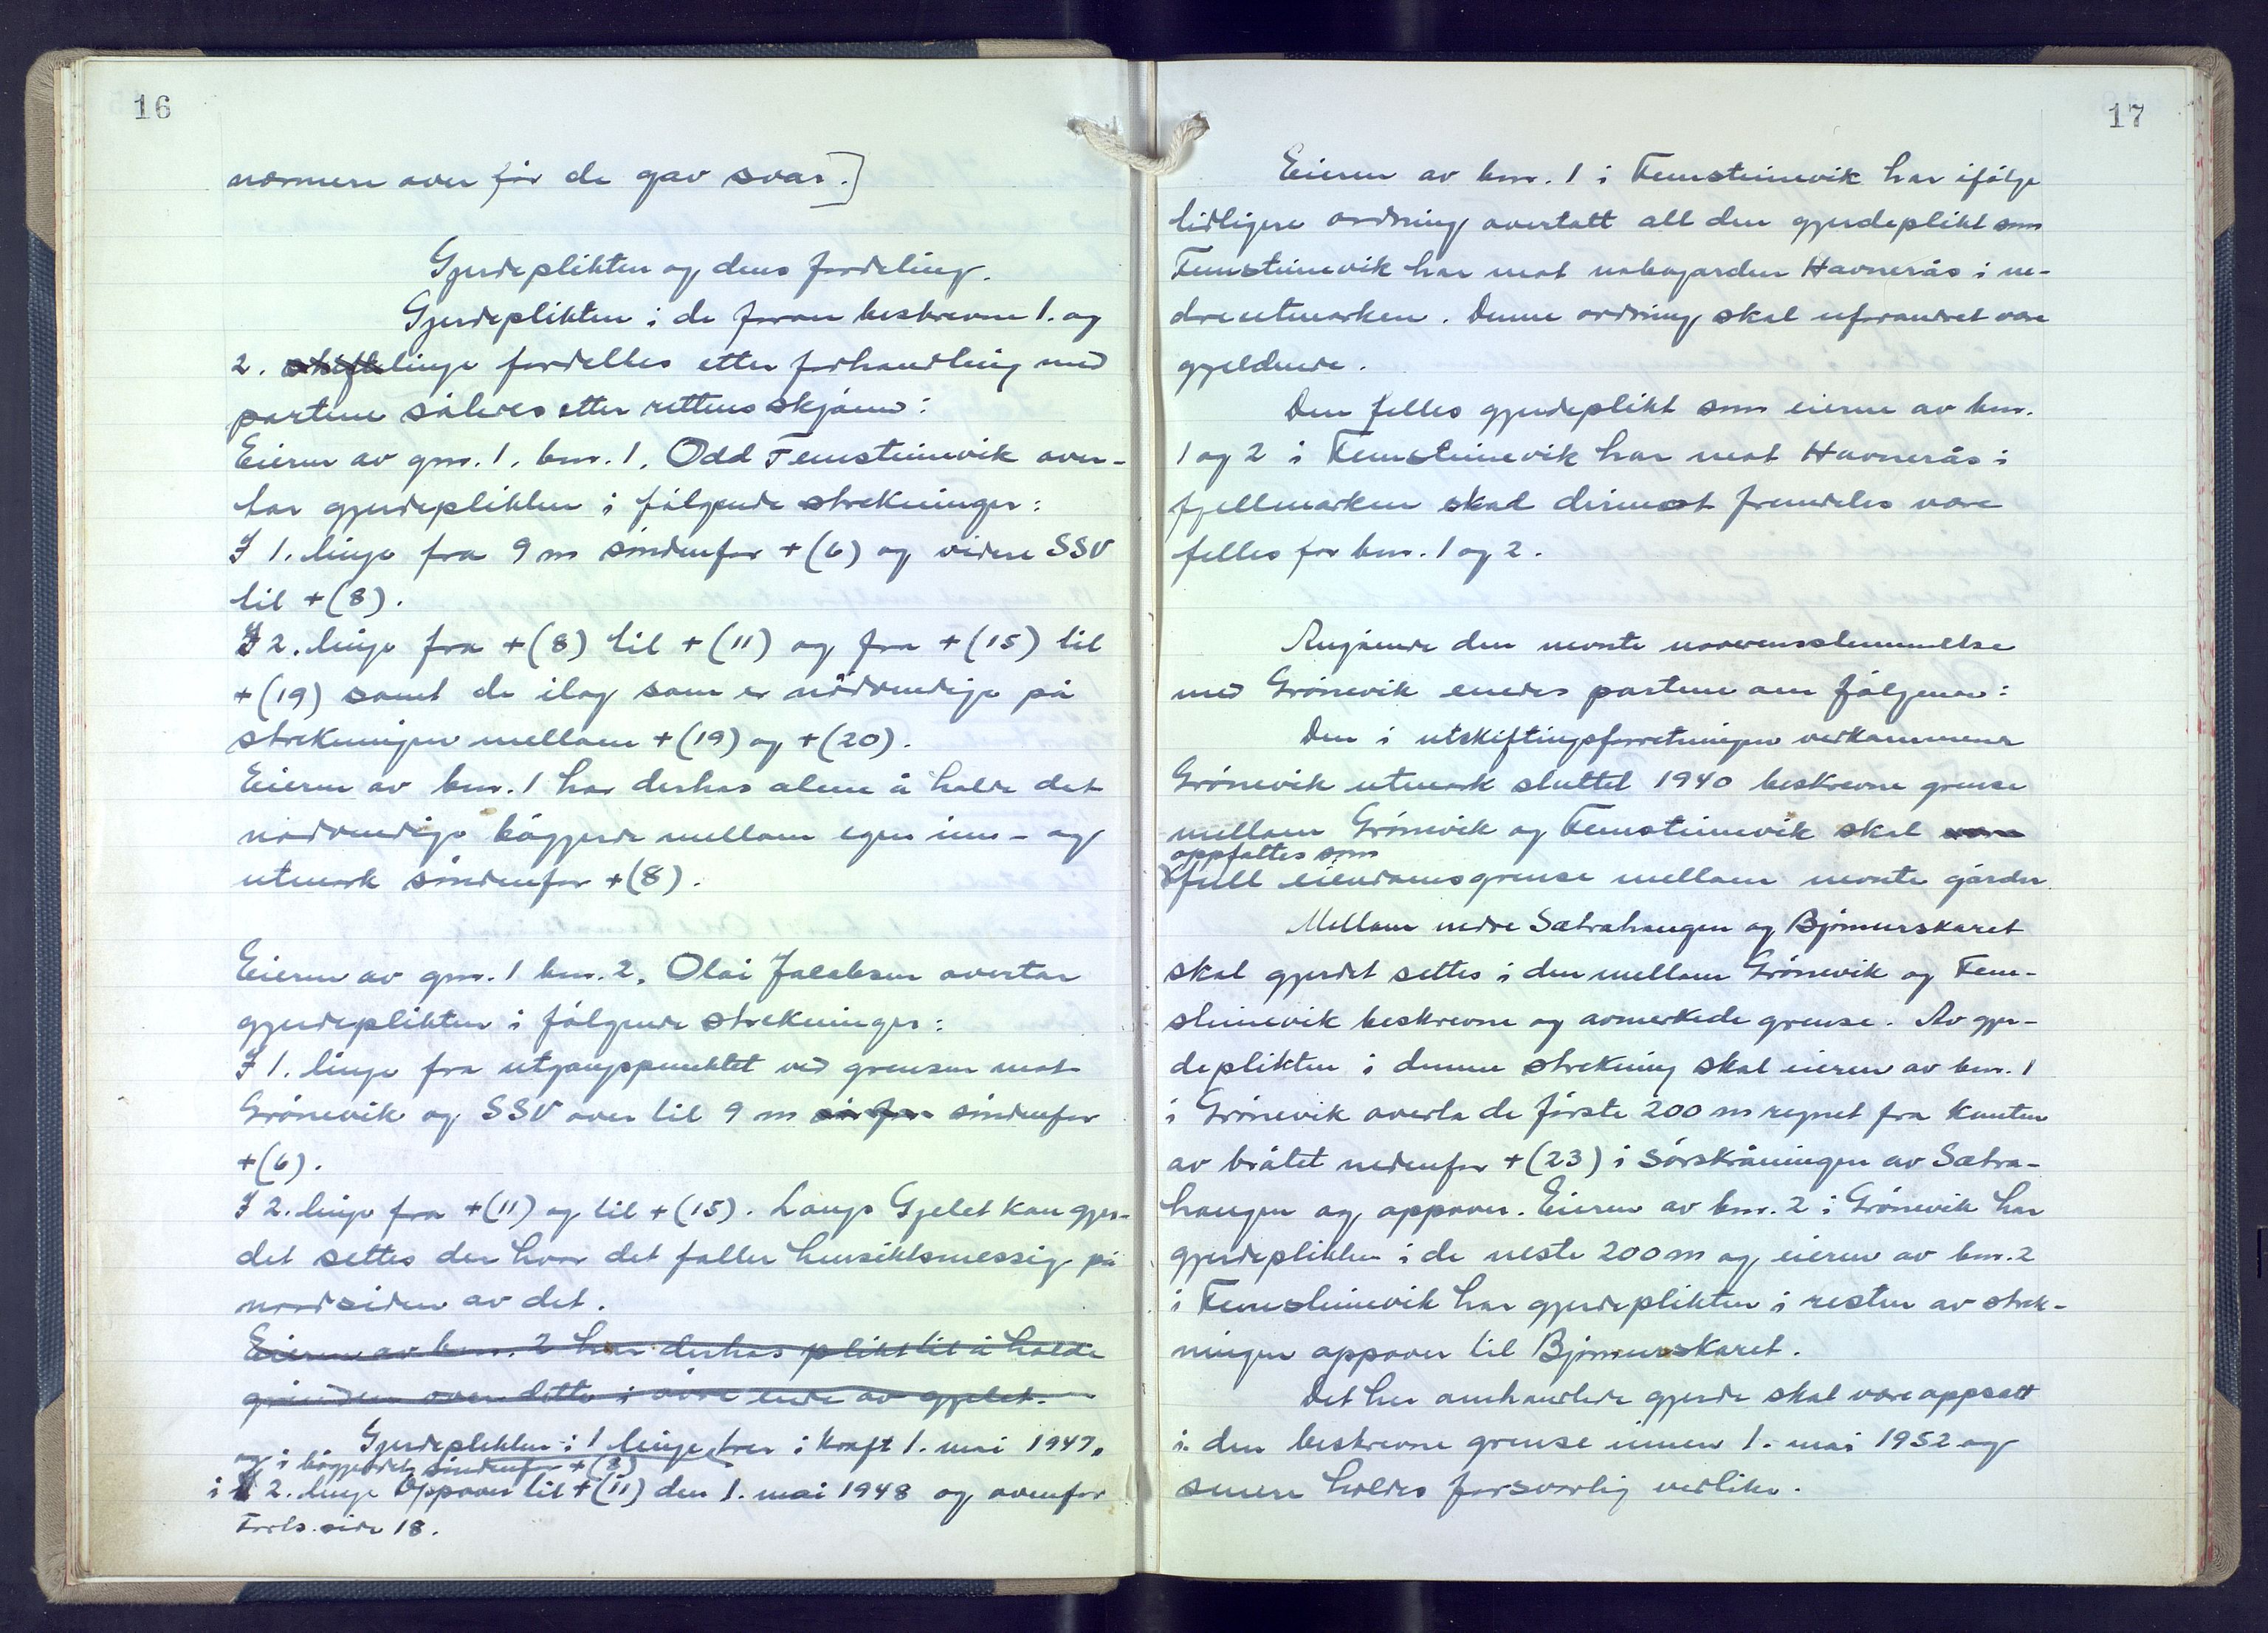 16
nærmere over før de gav svar.]
Gjerdeplikten og dens fordeling.
Gjerdeplikten i de foran beskrevne 1. og
2. skiftelinje fordeltes etter forhandling med
partene således etter rettens skjønn:
Eieren av gnr. 1, bnr. 1, Odd Femsteinevik over-
tar gjerdeplikten i følgende strekninger:
I 1. linje fra 9 m søndenfor +(6) og videre SSV
til +(8).
I 2. linje fra +(8) til +(11) og fra +(15) til
+(19) samt de ilag som er nødvendige på
strekningen mellom +(19) og +(20).
Eieren av bnr. 1 har derhos alene å holde det
nødvendige bøgjerde mellom egen inn- og
utmark søndenfor +(8).
Eieren av gnr. 1 bnr. 2, Olai Jakobsen overtar
gjerdeplikten i følgende strekninger:
I 1. linje fra utgangspunktet ved grensen mot
Grønevik og SSV over til 9 m sør for søndenfor
+(6).
I 2. linje fra +(11) og til +(15). Langs Gjelet kan gjer-
det settes der hvor det faller hensiktsmessig på
nordsiden av det.
Eieren av bnr. 2 har derhos plikt til å holde
grinden over dette i øvre ende av gjelet.
Gjerdeplikten i 1 linje trer i kraft 1. mai 1947,
og i bøgjerdet søndenfor +(8)
i 2. linje oppover til +(11) den 1. mai 1948 og ovenfor
Forts. side 18.
17
Eieren av bnr. 1 i Femsteinevik har ifølge
tidligere ordning overtatt all den gjerdeplikt som
Femsteinevik har mot nabogarden Havnerås i ne-
dre utmarken. Denne ordning skal uforandret være
gjeldende.
Den felles gjerdeplikt som eierne av bnr.
1 og 2 i Femsteinevik har mot Havnerås i
fjellmarken skal derimot fremdeles være
felles for bnr. 1 og 2.
Angående den nevnte overensstemmelse
med Grønevik enedes partene om følgende:
Den i utskiftingsforretningen vedkommende
Grønevik utmark sluttet 1940 beskrevne grense
mellom Grønevik og Femsteinevik skal være
oppfattes som
full eiendomsgrense mellom nevnte gårder.
Mellom nedre Sætrahaugen og Bjørnurskaret
skal gjerdet settes i den mellom Grønevik og Fem-
steinevik beskrevne og avmerkede grense. Av gjer-
deplikten i denne strekning skal eieren av bnr. 1
i Grønevik overta de første 200 m regnet fra kanten
av bråtet nedenfor +(23) i sørskråningen av Sætra-
haugen og oppover. Eieren av bnr. 2 i Grønevik har
gjerdeplikten i de neste 200 m og eieren av bnr. 2
i Femsteinevik har gjerdeplikten i resten av strek-
ningen oppover til Bjørnurskaret.
Det her omhandlede gjerde skal være oppsatt
i den beskrevne grense innen 1. mai 1952 og
senere holdes forsvarlig vedlike.